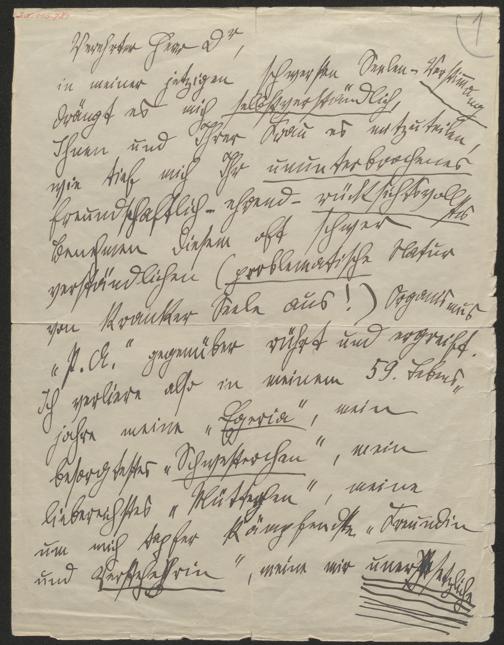 1
Verehrter Herr Dr,
in meiner jetzigen schwersten Seelen-Verstimmung
drängt es mich selbstverständlich,
Ihnen und Ihrer Frau es mitzuteilen,
wie tief mich Ihr ununterbrochenes
freundschaftlich-ehrend-rücksichtsvollstes
Benehmen diesem oft schwer
verständlichen (problematische Natur
von Kranker Seele aus!) Organismus
"P. A." gegenüber rührt und ergreift.
Ich verliere also in meinem 59. Lebens-
jahre meine "Egeria", mein
besorgtestes "Schwesterchen", mein
liebereichstes "Mütterchen", meine
um mich tapfer kämpfendste "Freundin
und Versteherin", meine mir unersetzliche